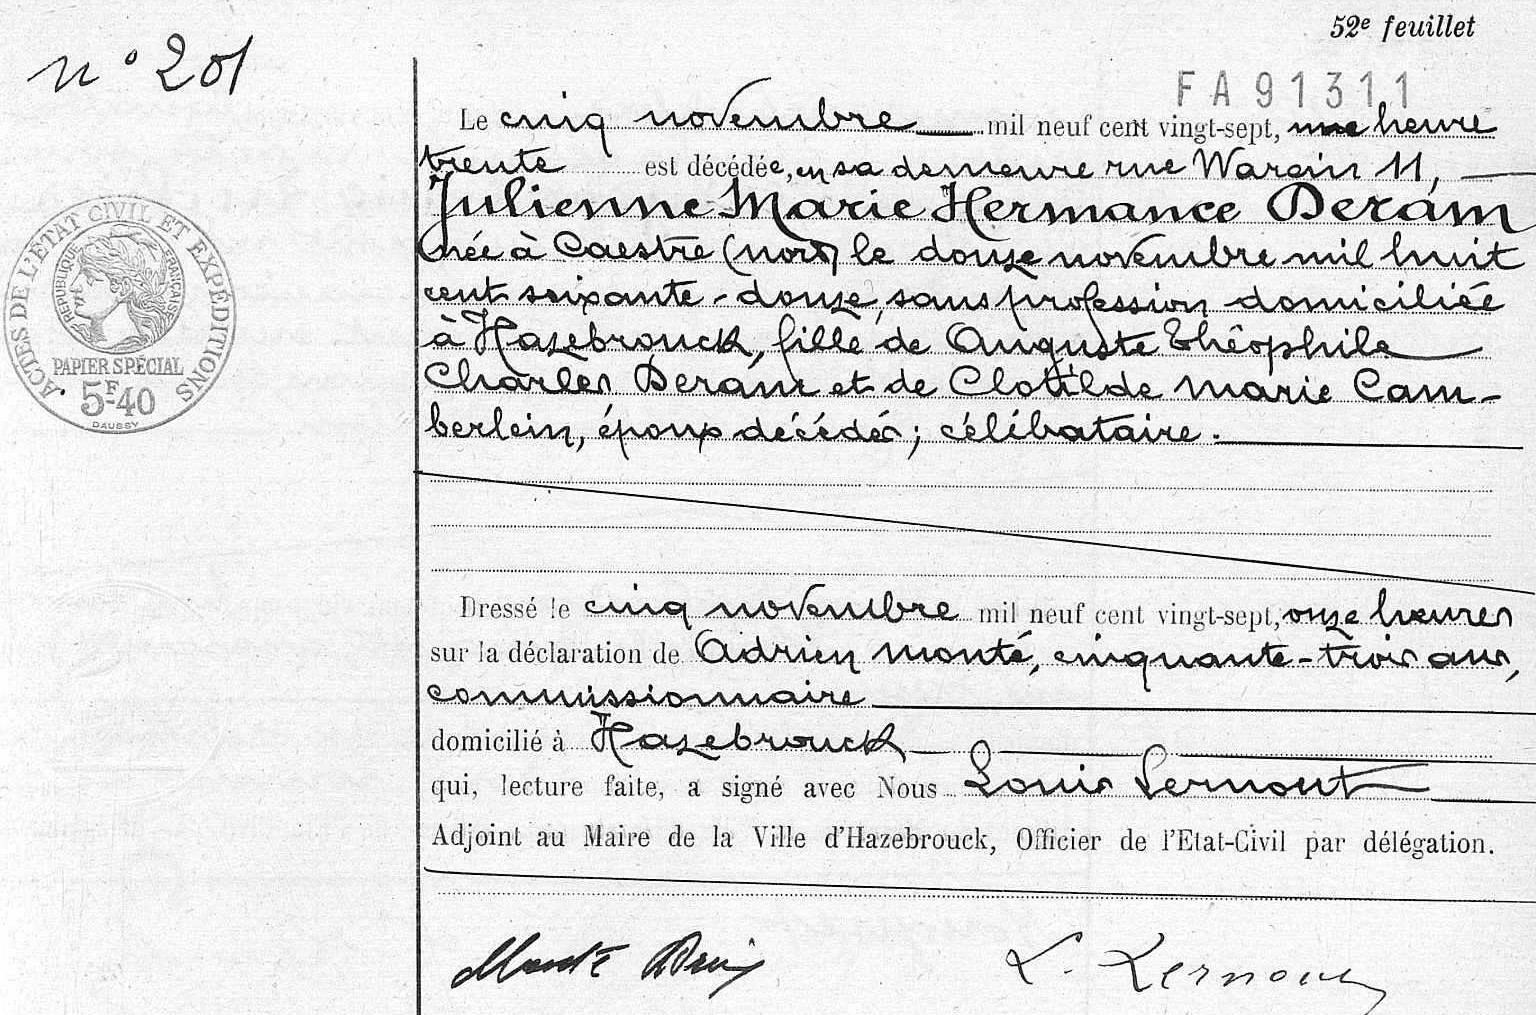 52e feuillet
n° 201
FA91311
Le cinq novembre mil neuf cent vingt-sept, une heure
trente est décédée, en sa demeure rue Warein 11,
Julienne Marie Hermance Deram
née à Caestre (nord) le douze novembre mil huit
cent soixante-douze, sans profession domiciliée
à Hazebrouck, fille de Auguste Théophile
Charles Deram et de Clotilde Marie Cam-
berlein, époux décédés ; célibataire.
ACTES DE L'ÉTAT CIVIL ET EXPÉDITIONS
RÉPUBLIQUE FRANÇAISE
PAPIER SPÉCIAL
5F40
DAUSSY
Dressé le cinq novembre mil neuf cent vingt-sept, onze heures
sur la déclaration de Adrien Monté, cinquante-trois ans,
commissionnaire
domicilié à Hazebrouck
qui, lecture faite, a signé avec Nous Louis Lernout
Adjoint au Maire de la Ville d'Hazebrouck, Officier de l'Etat-Civil par délégation.
Monté L. Lernout